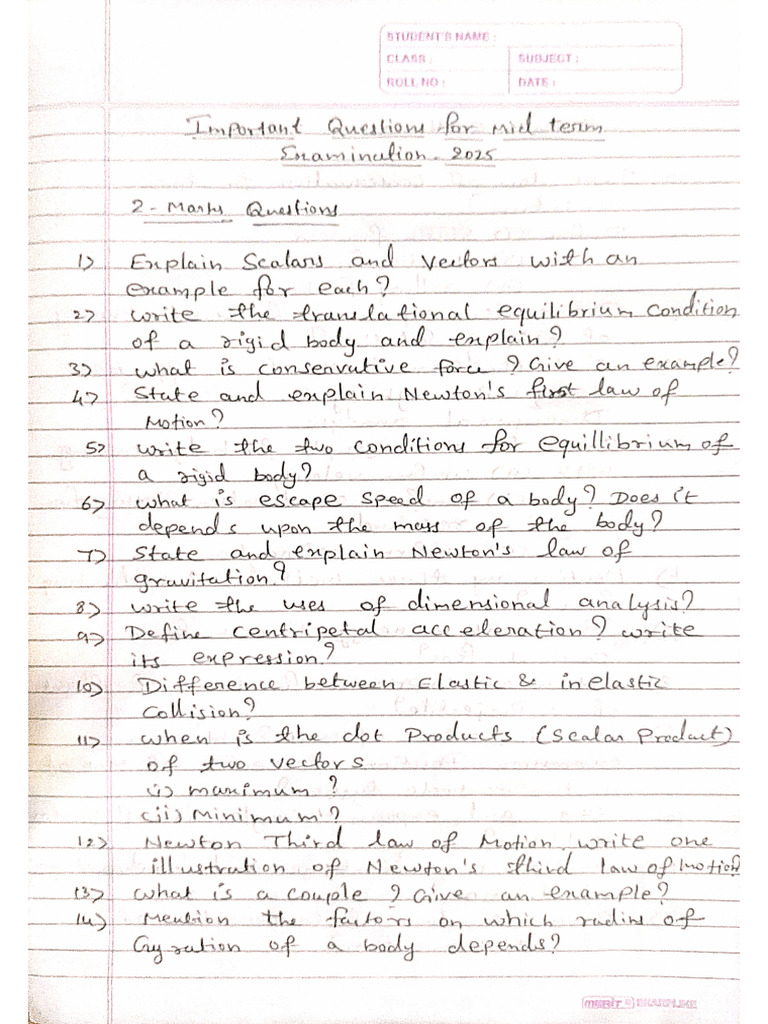 STUDENT'S NAME :
CLASS : SUBJECT :
ROLL NO : DATE :
Important Questions for mid term
Examination. 2025
2-Marks Questions
1) Explain Scalars and vectors with an
example for each?
2) write the translational equilibrium condition
of a rigid body and explain?
3) what is conservative force? Give an example?
4) State and explain Newton's first law of
Motion?
5) write the two conditions for equillibrium of
a rigid body?
6) what is escape speed of a body? Does it
depends upon the mass of the body?
7) State and explain Newton's law of
gravitation?
8) write the uses of dimensional analysis?
9) Define centripetal acceleration? write
its expression?
10) Difference between Elastic & inelastic
Collision?
11) when is the dot Products (Scalar Product)
of two vectors
(i) maximum?
(ii) Minimum?
12) Newton Third law of Motion. write one
illustration of Newton's third law of motion?
13) what is a couple? Give an example?
14) Mention the factors on which radius of
Gyration of a body depends?
merit SHARPLINE